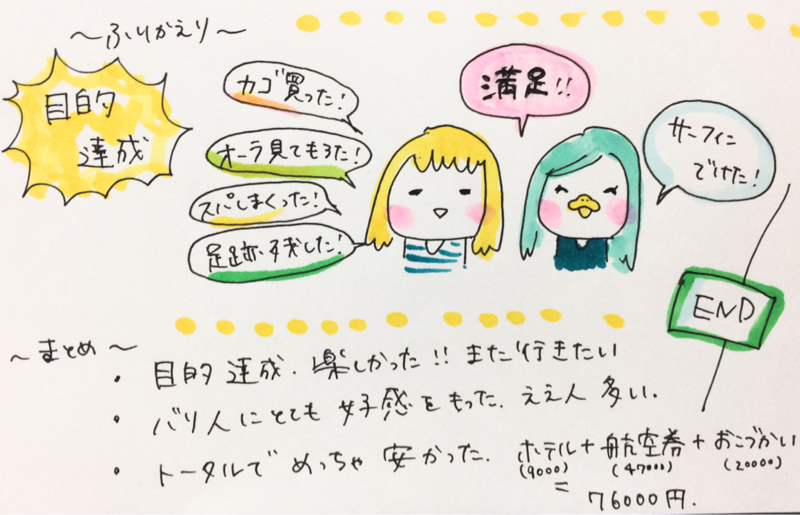 〜ふりかえり〜
目的
達成
カゴ買った!
オーラ見てもろた!
スパしまくった!
足跡残した!
満足!!
サーフィン
でけた!
END
〜まとめ〜
・目的達成.楽しかった!!また行きたい
・バリ人にとても好感をもった.ええ人多い.
・トータルでめっちゃ安かった.ホテル+航空券+おこづかい
(9000) (47000) (20000)
=
76000円.